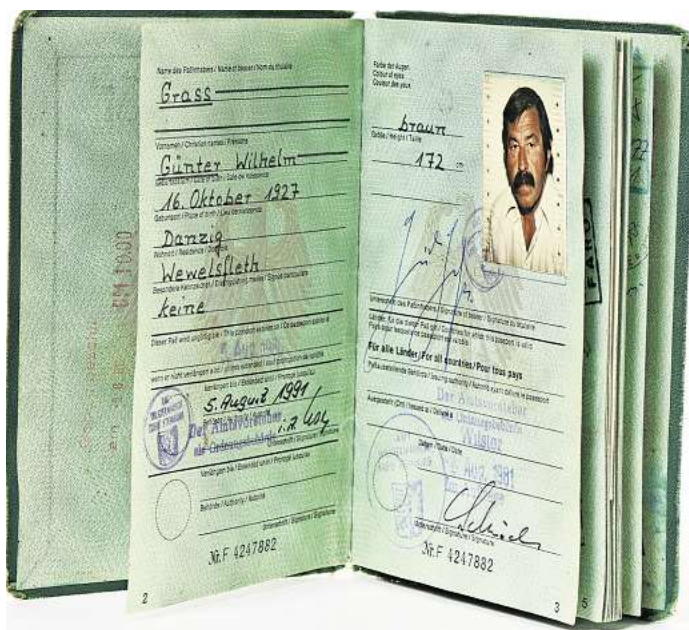 Name des Paßinhabers / Name of bearer / Nom du titulaire
Grass
Vornamen / Christian names / Prénoms
Günter Wilhelm
Geburtsdatum / Date of birth / Date de naissance
16. Oktober 1927
Geburtsort / Place of birth / Lieu de naissance
Danzig
Wohnort / Residence / Domicile
Wewelsfleth
Besondere Kennzeichen / Distinguishing marks / Signes particuliers
keine
Dieser Paß wird ungültig am / This passport expires on / Ce passeport expire le
wenn er nicht verlängert wird / unless extended / sauf prolongation de validité
Verlängert bis / Extended until / Prorogé jusqu'au
5. August 1991
Behörde / Authority / Autorité
Der Amtsvorsteher
als Ordnungsbehörde
Unterschrift / Signature / Signature
Verlängert bis / Extended until / Prorogé jusqu'au
Behörde / Authority / Autorité
Unterschrift / Signature / Signature
Nr. F 4247882
2
Farbe der Augen
Colour of eyes
Couleur des yeux
braun
Größe / Height / Taille
172 cm
Unterschrift des Paßinhabers / Signature of bearer / Signature du titulaire
Länder, für die dieser Paß gilt / Countries for which this passport is valid
Pays pour lesquels ce passeport est valable
Für alle Länder / For all countries / Pour tous pays
Paßausstellende Behörde / Issuing authority / Autorité ayant délivré le passeport
Der Amtsvorsteher
als Ordnungsbehörde
Ausgestellt (Ort) / Issued at / Délivré à
Wilster
Datum / Date / Date
AUG. 1981
Unterschrift / Signature / Signature
Nr. F 4247882
3
5